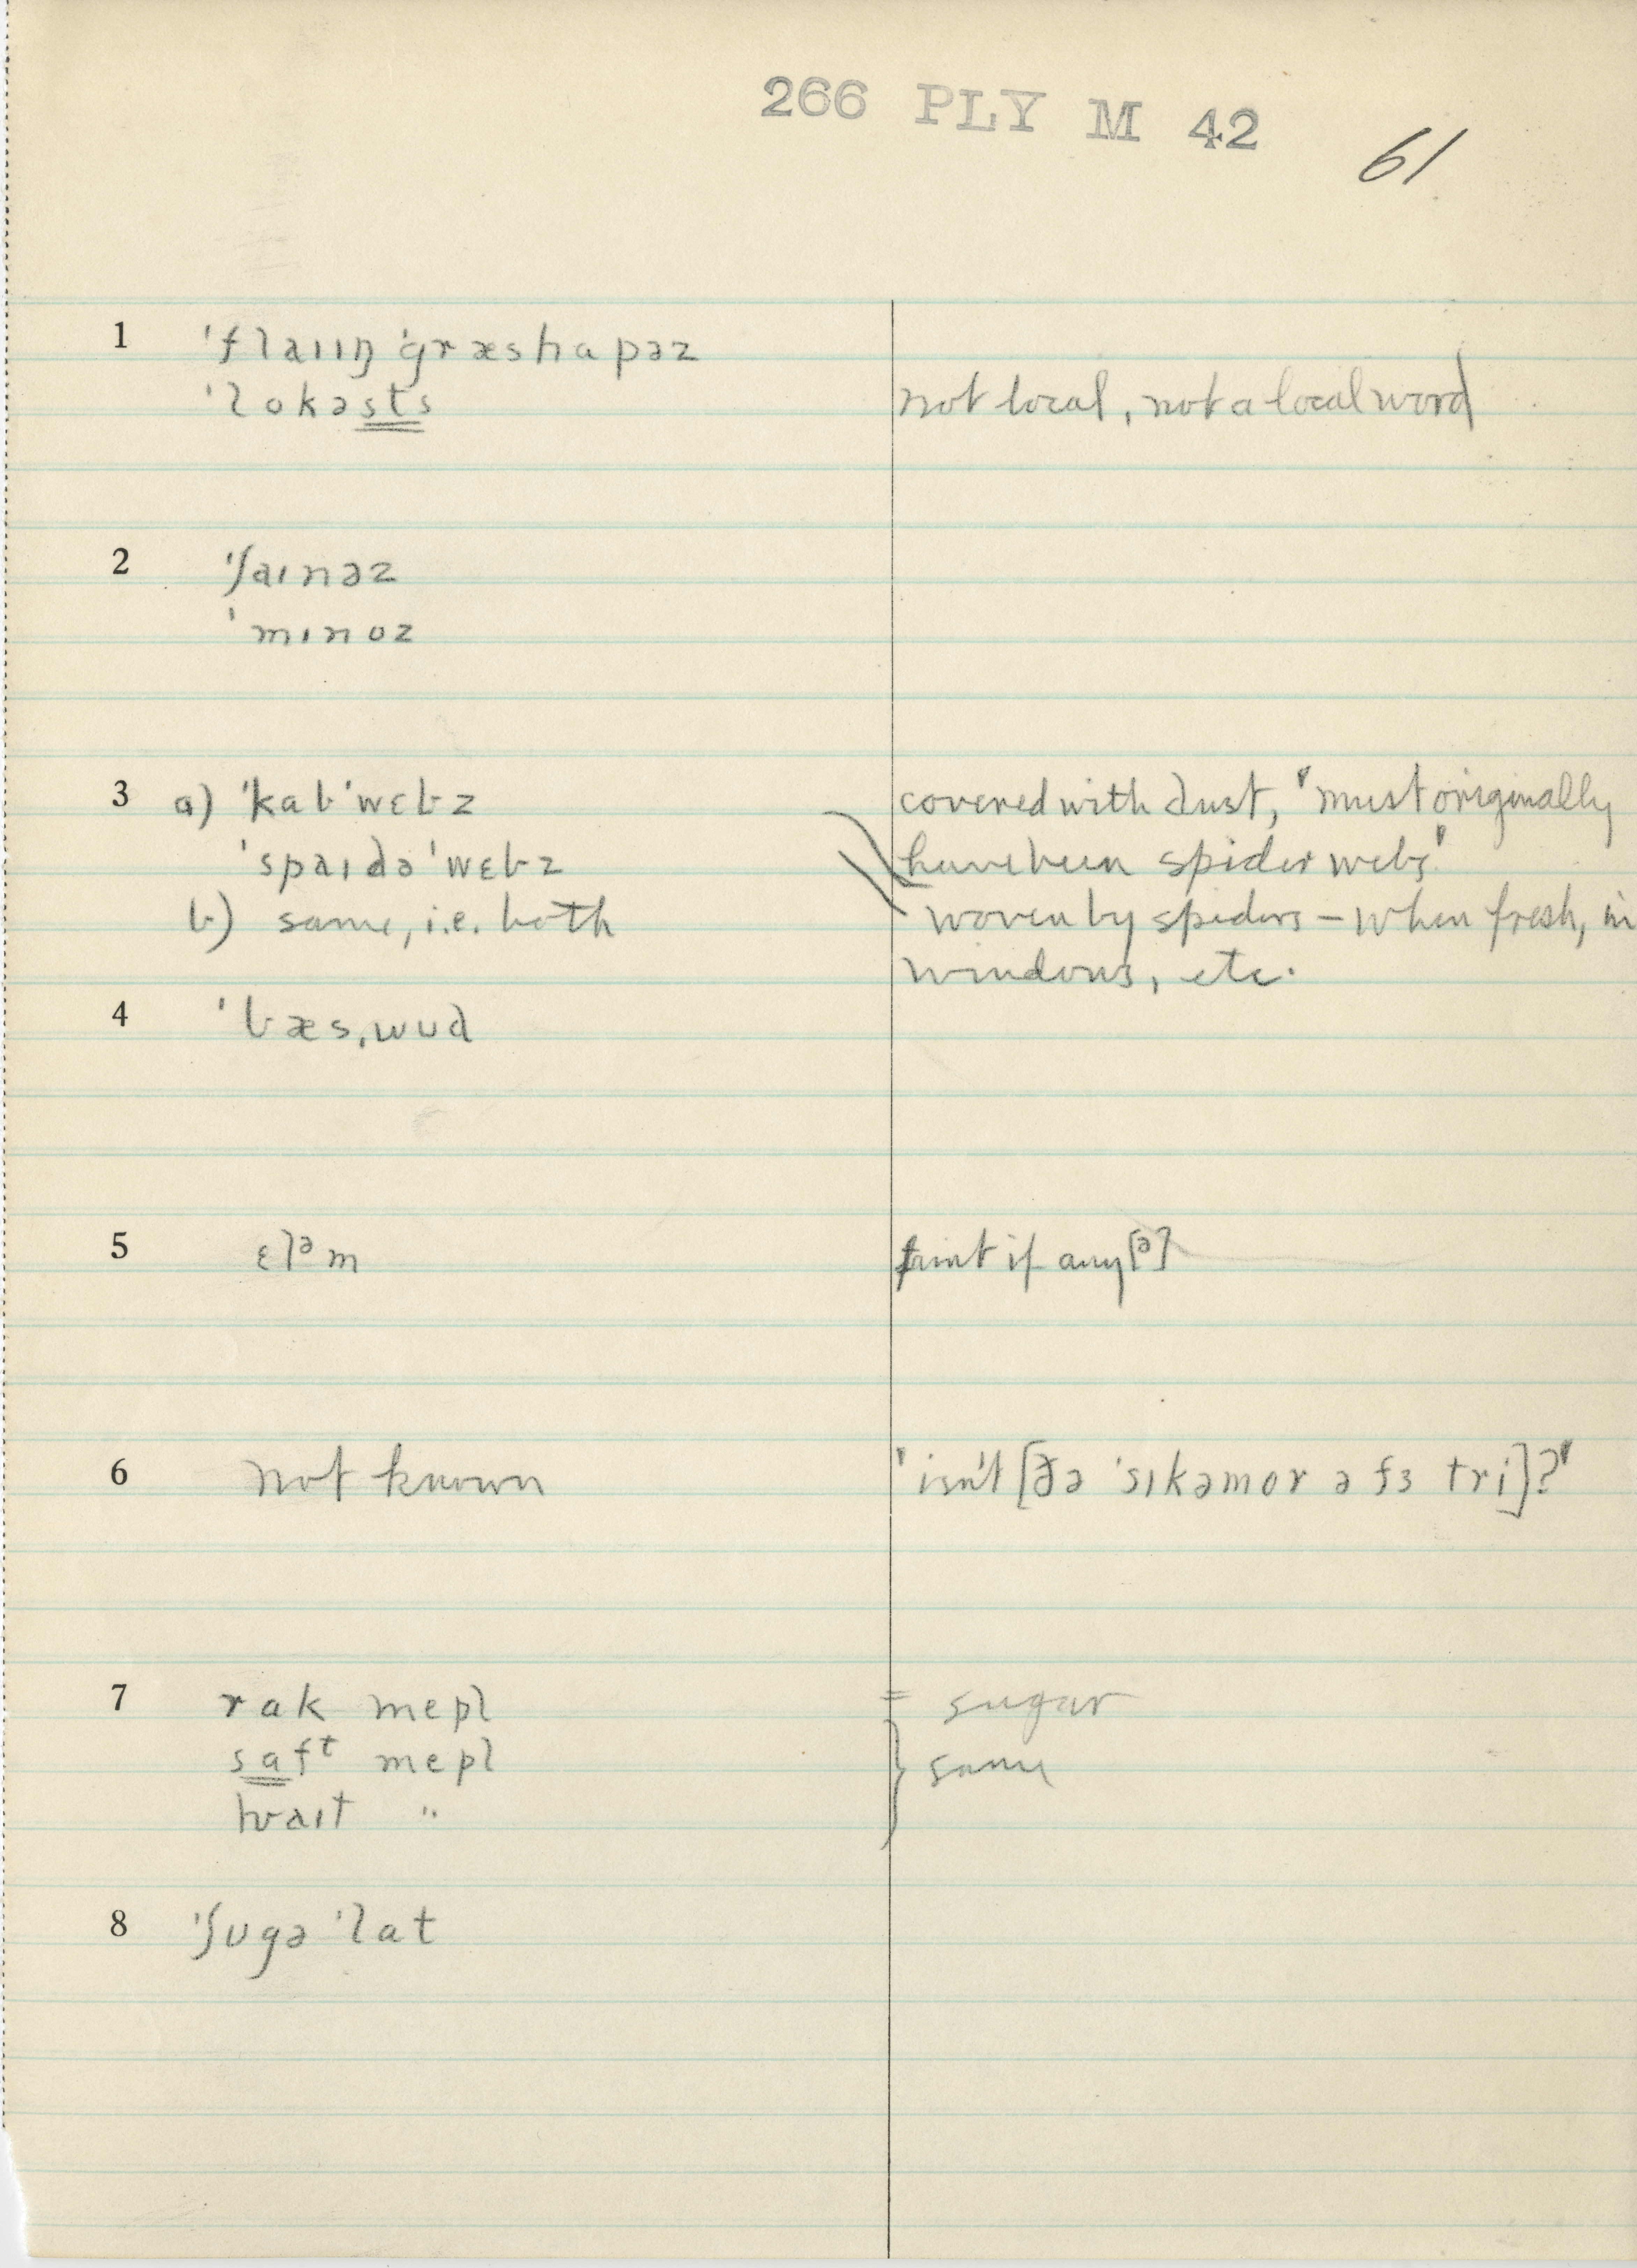 266 PLY M 42
61
1 'flaɪɪŋ 'græshapəz
'lokəsts not local, not a local word
2 'ʃaɪnəz
'mɪnoz
3 a) 'kab'wɛbz covered with dust, "must originally
'spaɪdə'wɛbz have been spider webs"
b) same, i.e. both woven by spiders – when fresh, in
windows, etc.
4 'bæs,wʊd
5 ɛlᵊm faint if any [ə]
6 not known "isn't [ðə 'sɪkəmor ə fɜ tri]?"
7 rak mepl = sugar
safᵗ mepl } same
hwaɪt "
8 'ʃʊgə 'lat